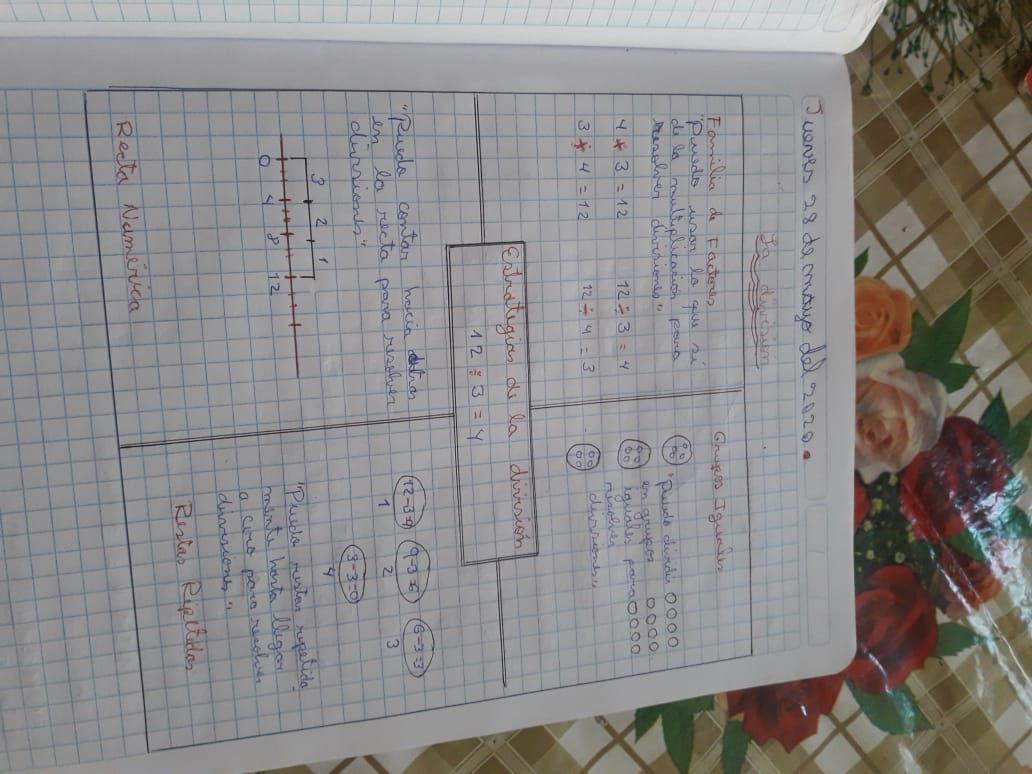 Jueves 28 de mayo del 2020.
La división
Familia de Factores
"Puedo usar lo que sí
de la multiplicación para
resolver divisiones"
4 × 3 = 12
12 ÷ 3 = 4
3 × 4 = 12
12 ÷ 4 = 3
Grupos Iguales
"Puedo dividir
en grupos
iguales para
resolver
divisiones"
Estrategias de la división
12 ÷ 3 = 4
"Puedo contar hacia atras
en la recta para resolver
divisiones"
3 2 1
0 4 8 12
Recta Numérica
12-3=9 9-3=6 6-3=3
1 2 3
3-3=0
4
"Puedo restar repetida-
mente hasta llegar
a cero para resolver
divisiones"
Restas Repetidas